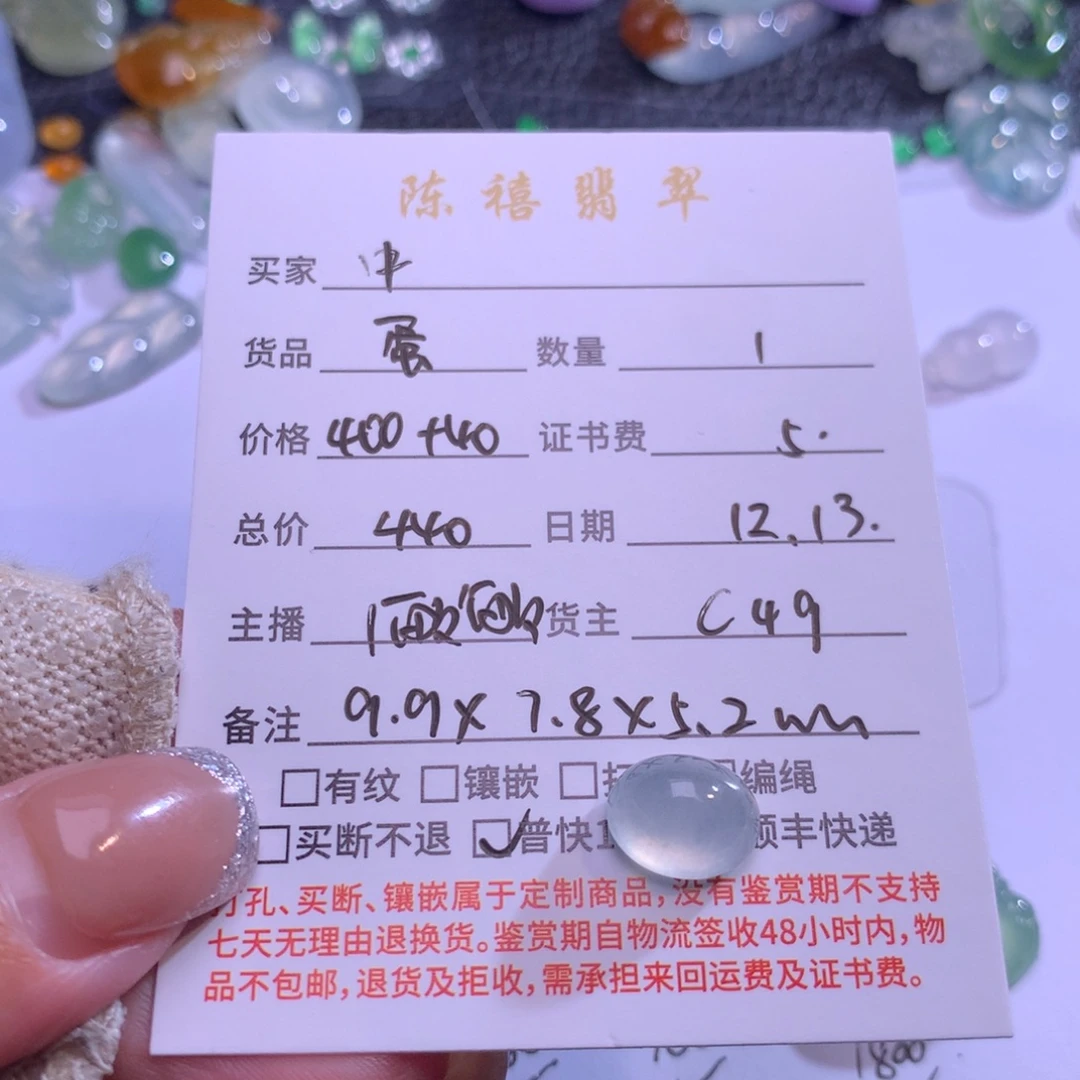 陈禧翡翠
买家 冲
货品 蛋 数量 1
价格 400+40 证书费 5.
总价 440 日期 12.13.
主播 货主 C49
备注 9.9x 7.8x5.2mm
□有纹 □镶嵌 □ 编绳
□买断不退 ☑普快1 顺丰快递
打孔、买断、镶嵌属于定制商品，没有鉴赏期不支持
七天无理由退换货。鉴赏期自物流签收48小时内，物
品不包邮，退货及拒收，需承担来回运费及证书费。
1800